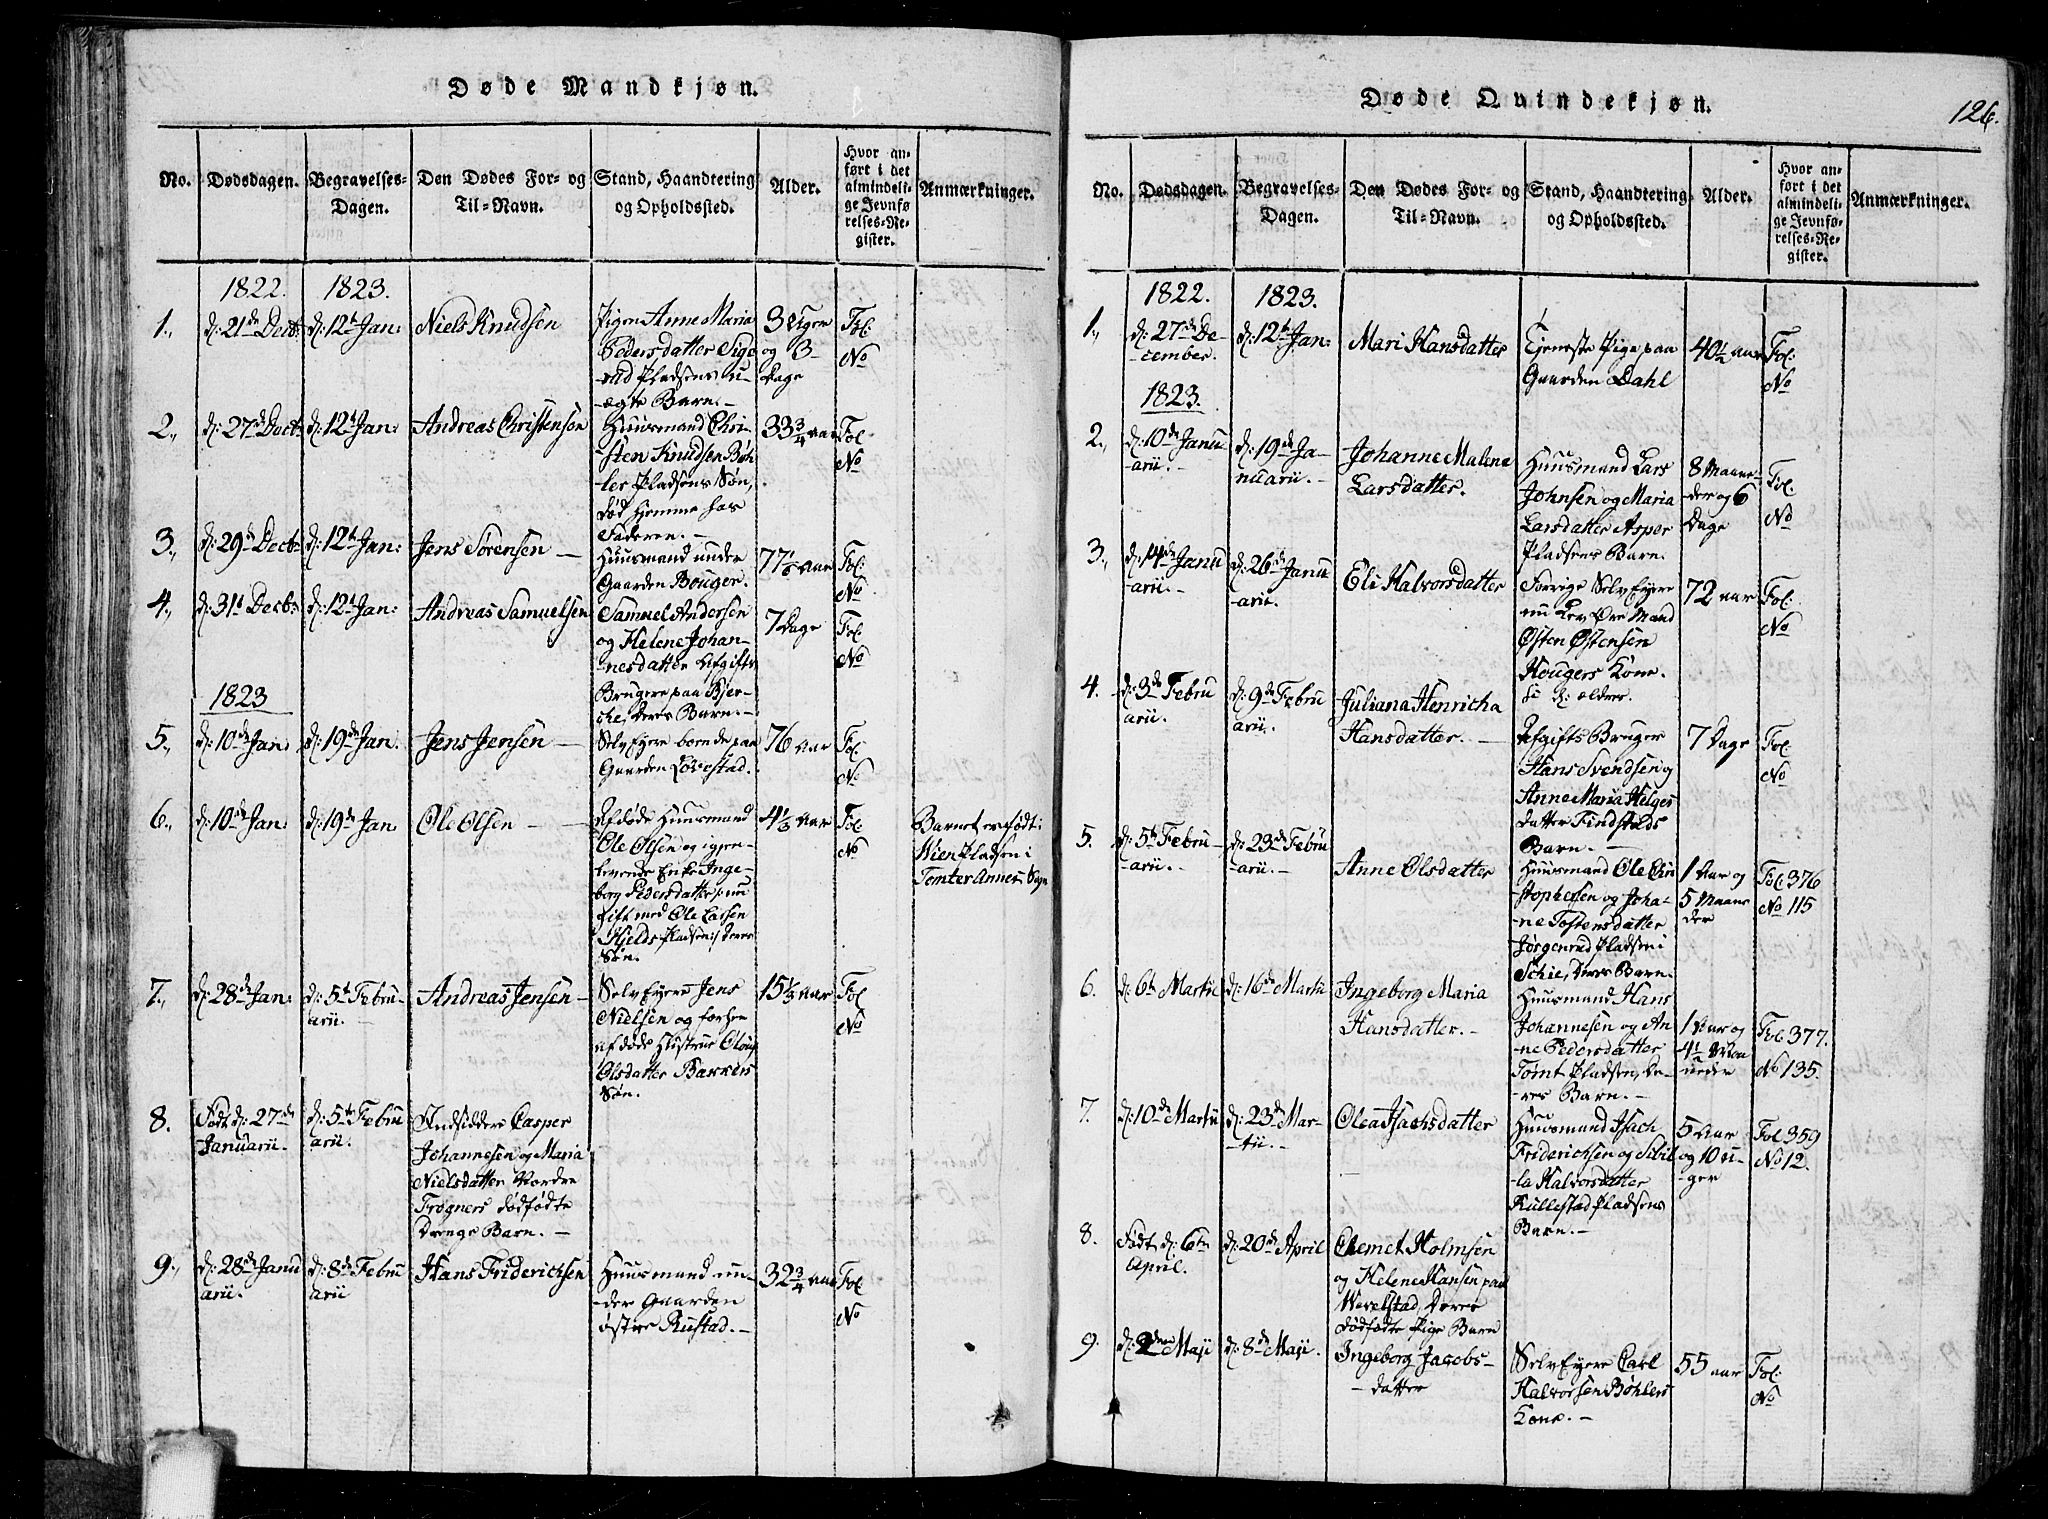 Døde Mandkjøn.
No.
Dødsdagen.
Begravelses-
Dagen.
Den Dødes For- og
Til-Navn.
Stand, Haandtering
og Opholdssted.
Alder.
Hvor an-
ført i det
almindeli-
ge Jevnfø-
relses-Re-
gister.
Anmærkninger.
1822.
1823.
1.,
d: 21de Decbr:
d: 12te Jan:
Niels Knudsen
Pigen Anne Maria
Pedersdatter Sige-
rud Pladsens u-
ægte Barn. -
3 Uger
og 3
Dage
Fol:
No
2.,
d: 27de Decbr:
d: 12te Jan:
Andreas Christensen
Huusmand Chri-
sten Knudsen Bøh-
ler Pladsens Søn,
død hjemme hos
Faderen. -
33 3/4 aar
Fol:
No
3.,
d: 29de Decbr:
d: 12te Jan:
Jens Sørensen -
Huusmand under
Gaarden Bouger.
aar
Fol:
No
4.,
d: 31te Decbr:
d: 12te Jan:
Andreas Samuelsen
Samuel Andersen
og Helene Johan-
nesdatter Afgifts
Brugere paa Kjer-
, deres Barn. -
7 Dage
Fol:
No
1823
5.,
d: 10de Jan:
d: 19de Jan.
Jens Jensen -
SelvEyere boende paa
Gaarden Løvestad.
76 Aar
Fol:
No
6.,
d: 10de Jan:
d: 19de Jan.
Ole Olsen -
Afdøde Huusmand
Ole Olsen og igjen-
levende Enke Inge-
borg Pedersdatter /: nu
gift med Ole Larsen
Hjelds Pladsen :/ deres
Søn.
4 1/3 Aar
Fol:
No
Barnet er født i
Wien Pladsen i
Tomter Annex Sogn
7.,
d: 28de Jan:
d: 5te Febru-
arii. -
Andreas Jensen -
SelvEyere Jens
Nielsen og forhen
afdøde Hustrue Oloug
Olsdatter Barkers
Søn.
15 1/3 Aar
Fol
No
8.
Født d: 27de
Januarii.
d: 5te Febru
arii.
Indsidder Casper
Johannesen og Maria
Nielsdatter Nordre
Trøgners dødfødte
Drenge Barn. -
9.,
d: 28de Janu
arii.
d: 8de Febru
arii
Hans Fridericksen
Huusmand un-
der Gaarden
østre Rustad. -
32 3/4 aar
Fol
No
Døde Qvindekjøn.
126.
No.
Dødsdagen.
Begravelses-
Dagen.
Den Dødes For- og
Til-Navn.
Stand, Haandtering
og Opholdssted.
Alder.
Hvor an-
ført i det
almindeli-
ge Jevnfø-
relses-Re-
gister.
Anmærkninger.
1822.
1823.
1.,
d: 27de De-
-cember.
d: 12te Jan:
Mari Hansdatter
Tjeneste Pige paa
Gaarden Dahl
40 1/2 aar
Fol:
No
1823.
2.,
d: 10de Janu
arii. -
d: 19de Ja-
nuarii. -
Johanne Malene
Larsdatter.
Huusmand Lars
Johnsen og Maria
Larsdatter Asper
Pladsens Barn.
8 Maane-
der og 6
Dage
Fol:
No
3.,
d: 14de Janu
arii. -
d: 26de Janu
-arii.
Eli Halvorsdatter
Forrige SelvEyere
nu Lev Øre Mand
Østen Østensen
Hougers Kone.
72 aar
Fol:
No
4.
d: 3de Febru
arii.
d: 9de Febru
arii.
Juliana Henricha
Hansdatter. -
Afgifts Bruger
Hans Svendsen og
Anne Maria Helges
datter Findstads
Barn. -
7 Dage
Fol:
No
5.
d: 5te Febru
-arii.
d: 23de Febru
-arii. -
Anne Olsdatter
Huusmand Ole Chri
stophersen og Joha-
ne Tostensdatter
Jørgenrud Pladsen i
Schie, deres Barn.
1 Aar og
5 Maane
der
Fol: 376
No 115
6.
d: 6te Martii
d: 16de Martii
Ingeborg Maria
Hansdatter. -
Huusmand Hans
Johannesen og An-
ne Pedersdatter
Tomt Pladsen, de-
res Barn. -
1 Aar og
4 1/2 Maa
neder
Fol 377.
No 135.
7.
d: 10de Martii
d: 23de Mar-
tii. -
Olea Isachsdatter
-
Huusmand Isach
Fridericksen og Sibil
la Halvorsdatter
Kullestad Pladsens
Barn. -
5 Aar
og 10 U-
-ger
Fol 359
No 12.
8.
Født d: 6te
April.
d: 20de April
Clemet Holmsen
og Helene Hansen paa
Wevelstad, deres
dødfødte Pige Barn
9.
d: 2den Maji
d: 8de Maji.
Ingeborg Jacobs-
- datter
SelvEyere Carl
Halvorsen Bøhlers
Kone. -
55 aar
Fol:
No